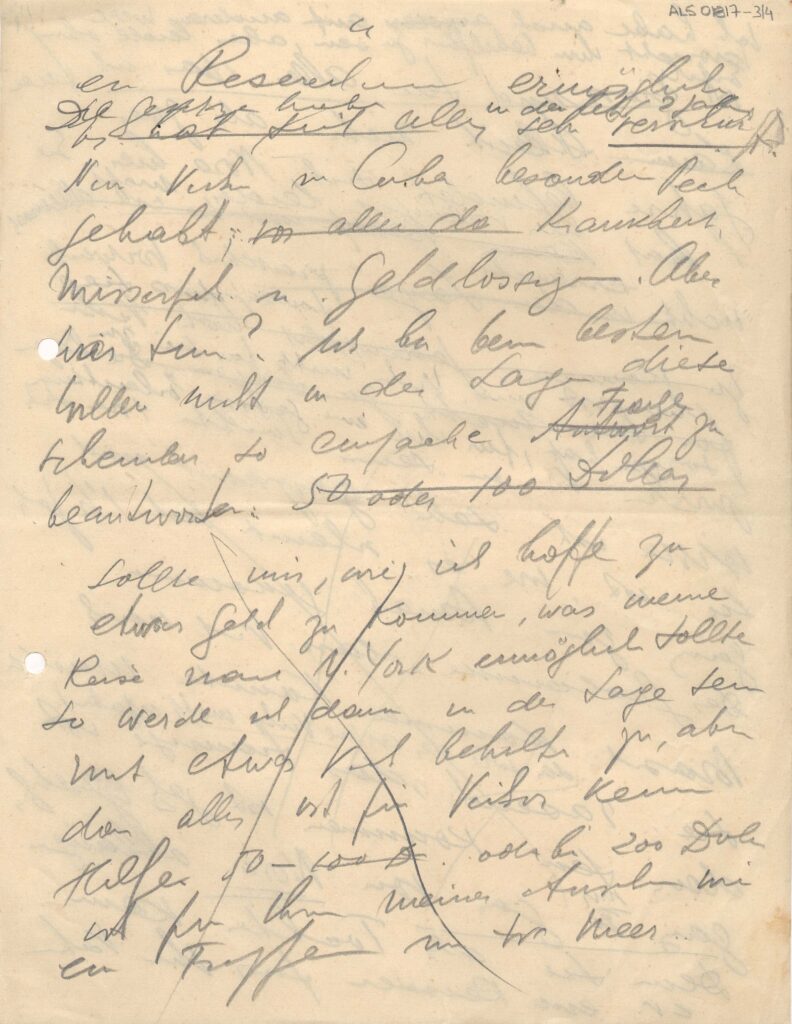 ALS 01817-3/4
"
en ermöglich
Die ganze in den letzt 2 Jahren
hat seit allem sehr
in Cuba besonder Pech
gehabt, vor allem da Krankheit,
Misserfolg u. Geldlosigen. Aber
was tun? Ich bin beim besten
Willen nicht in der Lage diese
scheinbar so einfache Antwort Frage zu
beantworten. 50 oder 100 Dollar
sollte mir, wie ich hoffe zu
etwas Geld zu kommen, was meine
Reise nach N. York ermöglich sollte
so werde ich dann in der Lage sein
mit etwas behilf zu, aber
dan alles ist für kein
Hilfe 50-100 D. oder bis 200 Doll
ist für ihn meines Ansehn wie
en Tropfen in tr Meer..